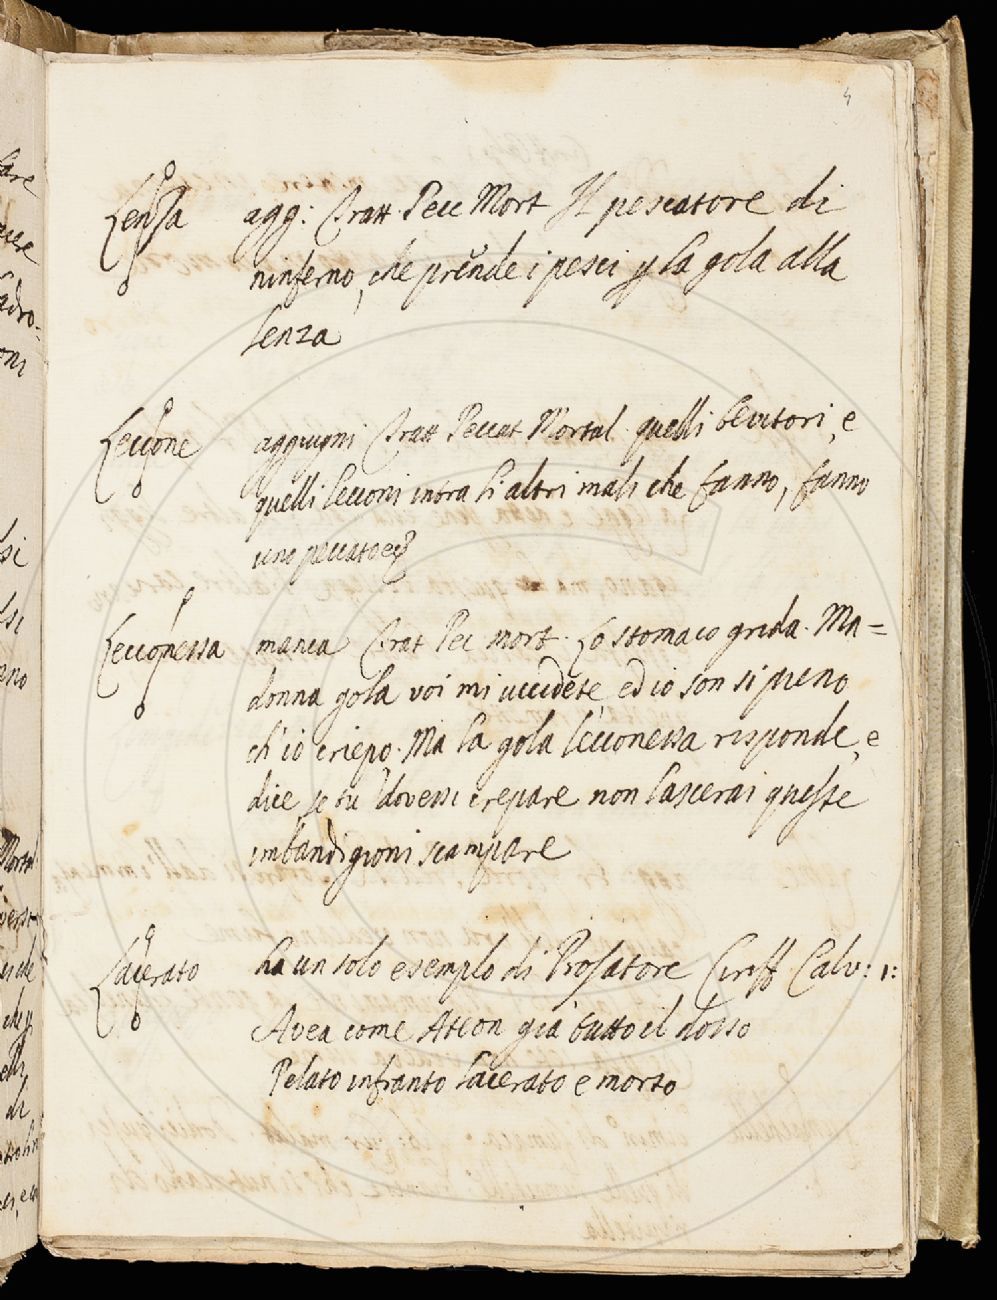 4
Lenza agg: Tratt. Pecc Mort Il pescatore di
ninferno, che prende i pesci p la gola alla
lenza
Leccone aggiugni Tratt Peccat Mortal. quelli bevitori, e
quelli lecconi intra li altri mali che fanno, fanno
uno peccato
Lecconessa manca Trat Pec mort. Lo stomaco grida. Ma=
donna gola voi mi uccidete, ed io son si pieno
ch'io criepo. Ma la gola lecconessa risponde, e
dice se tu dovessi crepare non lascerai queste
imbandigioni scampare
Lacerato ha un solo esemplo di Prosatore Ciriff Calv: 1:
Avea come Ateon già tutto il dosso
Pelato infranto lacerato e morso